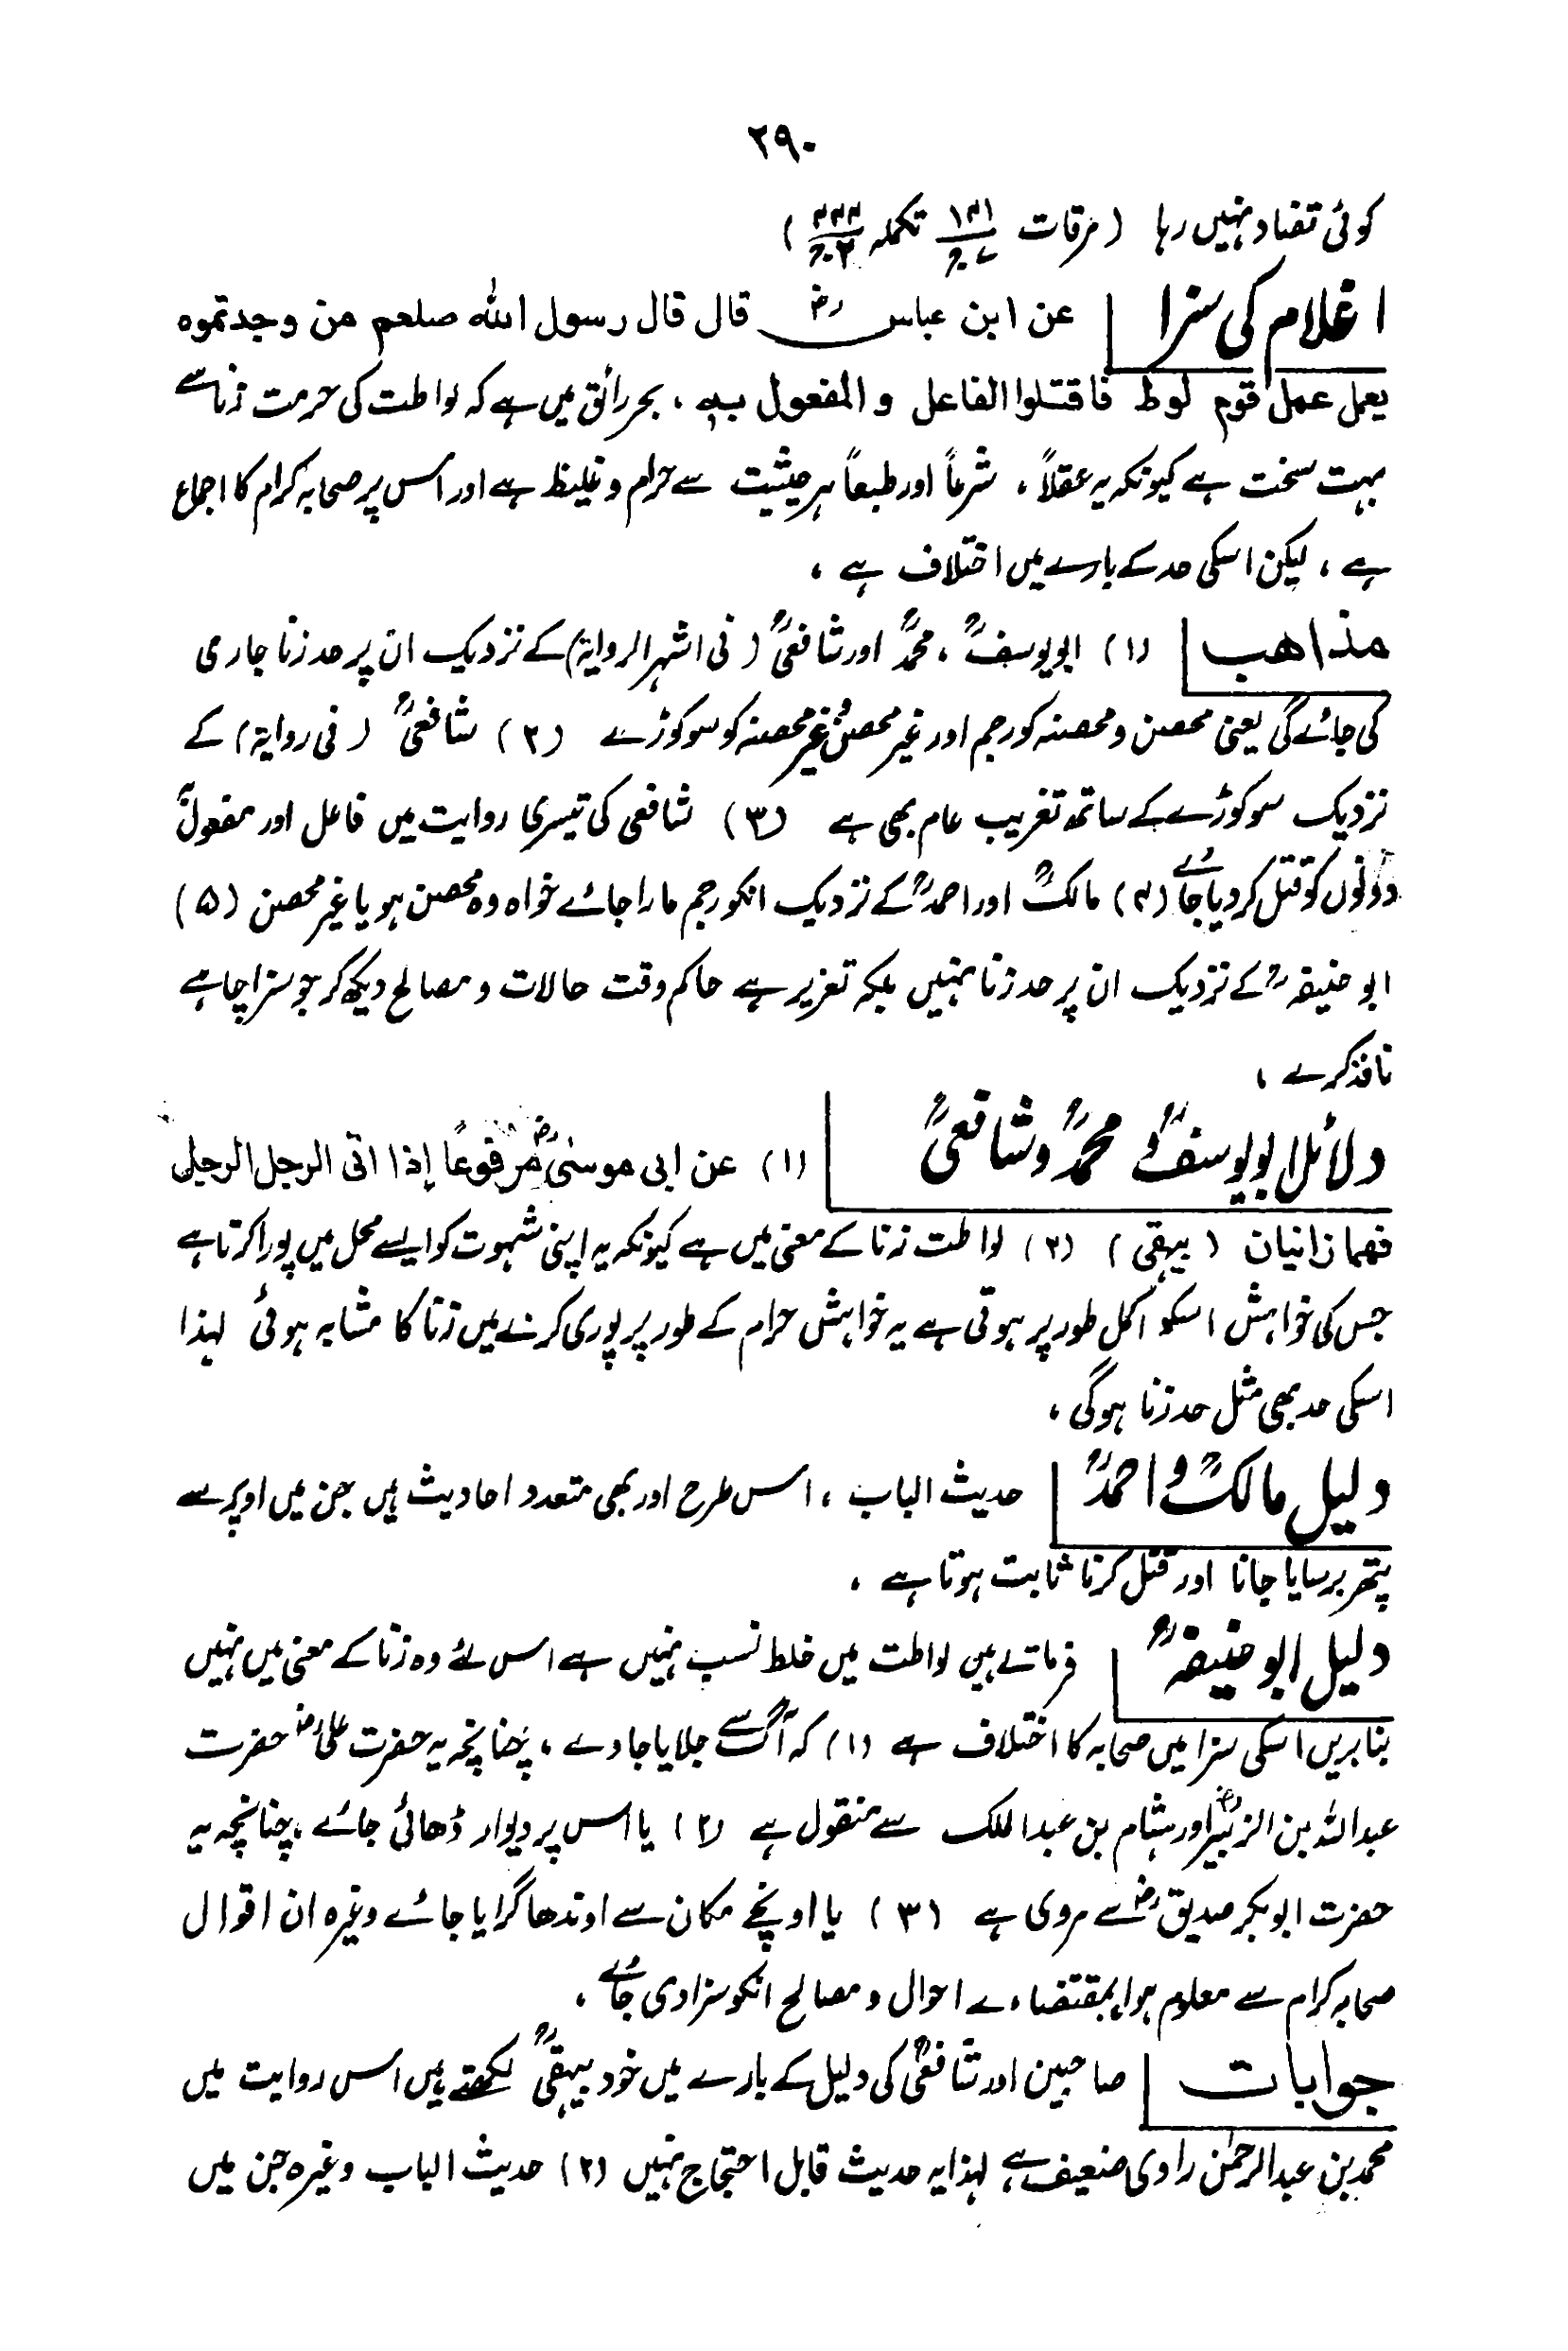 ۲۹۰
کوئی تضاد نہیں رہا (مرقات ۱۳۱/ج۷ تکملہ ۴۴۴/ج۲)
اغلام کی سزا عن ابن عباس رض قال قال رسول اللہ صلعم من وجدتموه
یعمل عمل قوم لوط فاقتلوا الفاعل والمفعول بہ، بحر رائق میں ہے کہ لواطت کی حرمت زنا سے
بہت سخت ہے کیونکہ یہ عقلاً، شرعاً اور طبعاً ہر حیثیت سے حرام و غلیظ ہے اور اس پر صحابہ کرام کا اجماع
ہے، لیکن اسکی حد کے بارے میں اختلاف ہے،
مذاهب (۱) ابویوسفؒ، محمدؒ اور شافعیؒ (فی اشہر الروایۃ) کے نزدیک ان پر حد زنا جاری
کی جائے گی یعنی محصن و محصنہ کو رجم اور غیر محصن و غیر محصنہ کو سو کوڑے (۲) شافعیؒ (فی روایۃ) کے
نزدیک سو کوڑے کے ساتھ تغریب عام بھی ہے (۳) شافعی کی تیسری روایت میں فاعل اور مفعول بہ
دونوں کو قتل کر دیا جائے (۴) مالکؒ اور احمدؒ کے نزدیک انکو رجم مارا جائے خواہ وہ محصن ہو یا غیر محصن (۵)
ابو حنیفہؒ کے نزدیک ان پر حد زنا نہیں بلکہ تعزیر ہے حاکم وقت حالات و مصالح دیکھ کر جو سزا چاہے
نافذ کرے،
دلائل ابویوسفؒ و محمدؒ و شافعیؒ (۱) عن ابی موسیٰ رض مرفوعًا إذا اتی الرجل الرجل
فهما زانیان (بیہقی) (۲) لواطت زنا کے معنی میں ہے کیونکہ یہ اپنی شہوت کو ایسے محل میں پورا کرتا ہے
جس کی خواہش اسکو اکمل طور پر ہوتی ہے یہ خواہش حرام کے طور پر پوری کرنے میں زنا کا مشابہ ہوئی لہذا
اسکی حد بھی مثل حد زنا ہوگی،
دلیل مالکؒ و احمدؒ حدیث الباب، اس طرح اور بھی متعدد احادیث ہیں جن میں اوپر سے
پتھر برسایا جانا اور قتل کرنا ثابت ہوتا ہے،
دلیل ابو حنیفہؒ فرماتے ہیں لواطت میں خلط نسب نہیں ہے اس لئے وہ زنا کے معنی میں نہیں
بنا بریں اسکی سزا میں صحابہ کا اختلاف ہے (۱) کہ آگ سے جلایا جاوے، چنانچہ یہ حضرت علی رض حضرت
عبداللہ بن الزبیر رض اور ہشام بن عبدالملک سے منقول ہے (۲) یا اس پر دیوار ڈھائی جائے، چنانچہ یہ
حضرت ابوبکر صدیق رض سے مروی ہے (۳) یا اونچے مکان سے اوندھا گرایا جائے وغیرہ ان اقوال
صحابہ کرام سے معلوم ہوا بمقتضاءے احوال و مصالح انکو سزا دی جائے،
جوابات صاحبین اور شافعیؒ کی دلیل کے بارے میں خود بیہقیؒ لکھتے ہیں اس روایت میں
محمد بن عبدالرحمٰن راوی ضعیف ہے لہذا یہ حدیث قابل احتجاج نہیں (۲) حدیث الباب وغیرہ جن میں